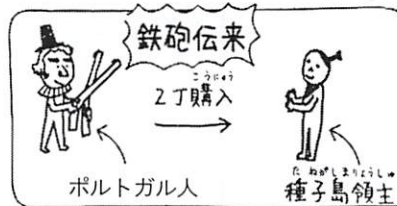 鉄砲伝来
こうにゅう
2丁購入
ポルトガル人
たねがしまりょうしゅ
種子島領主